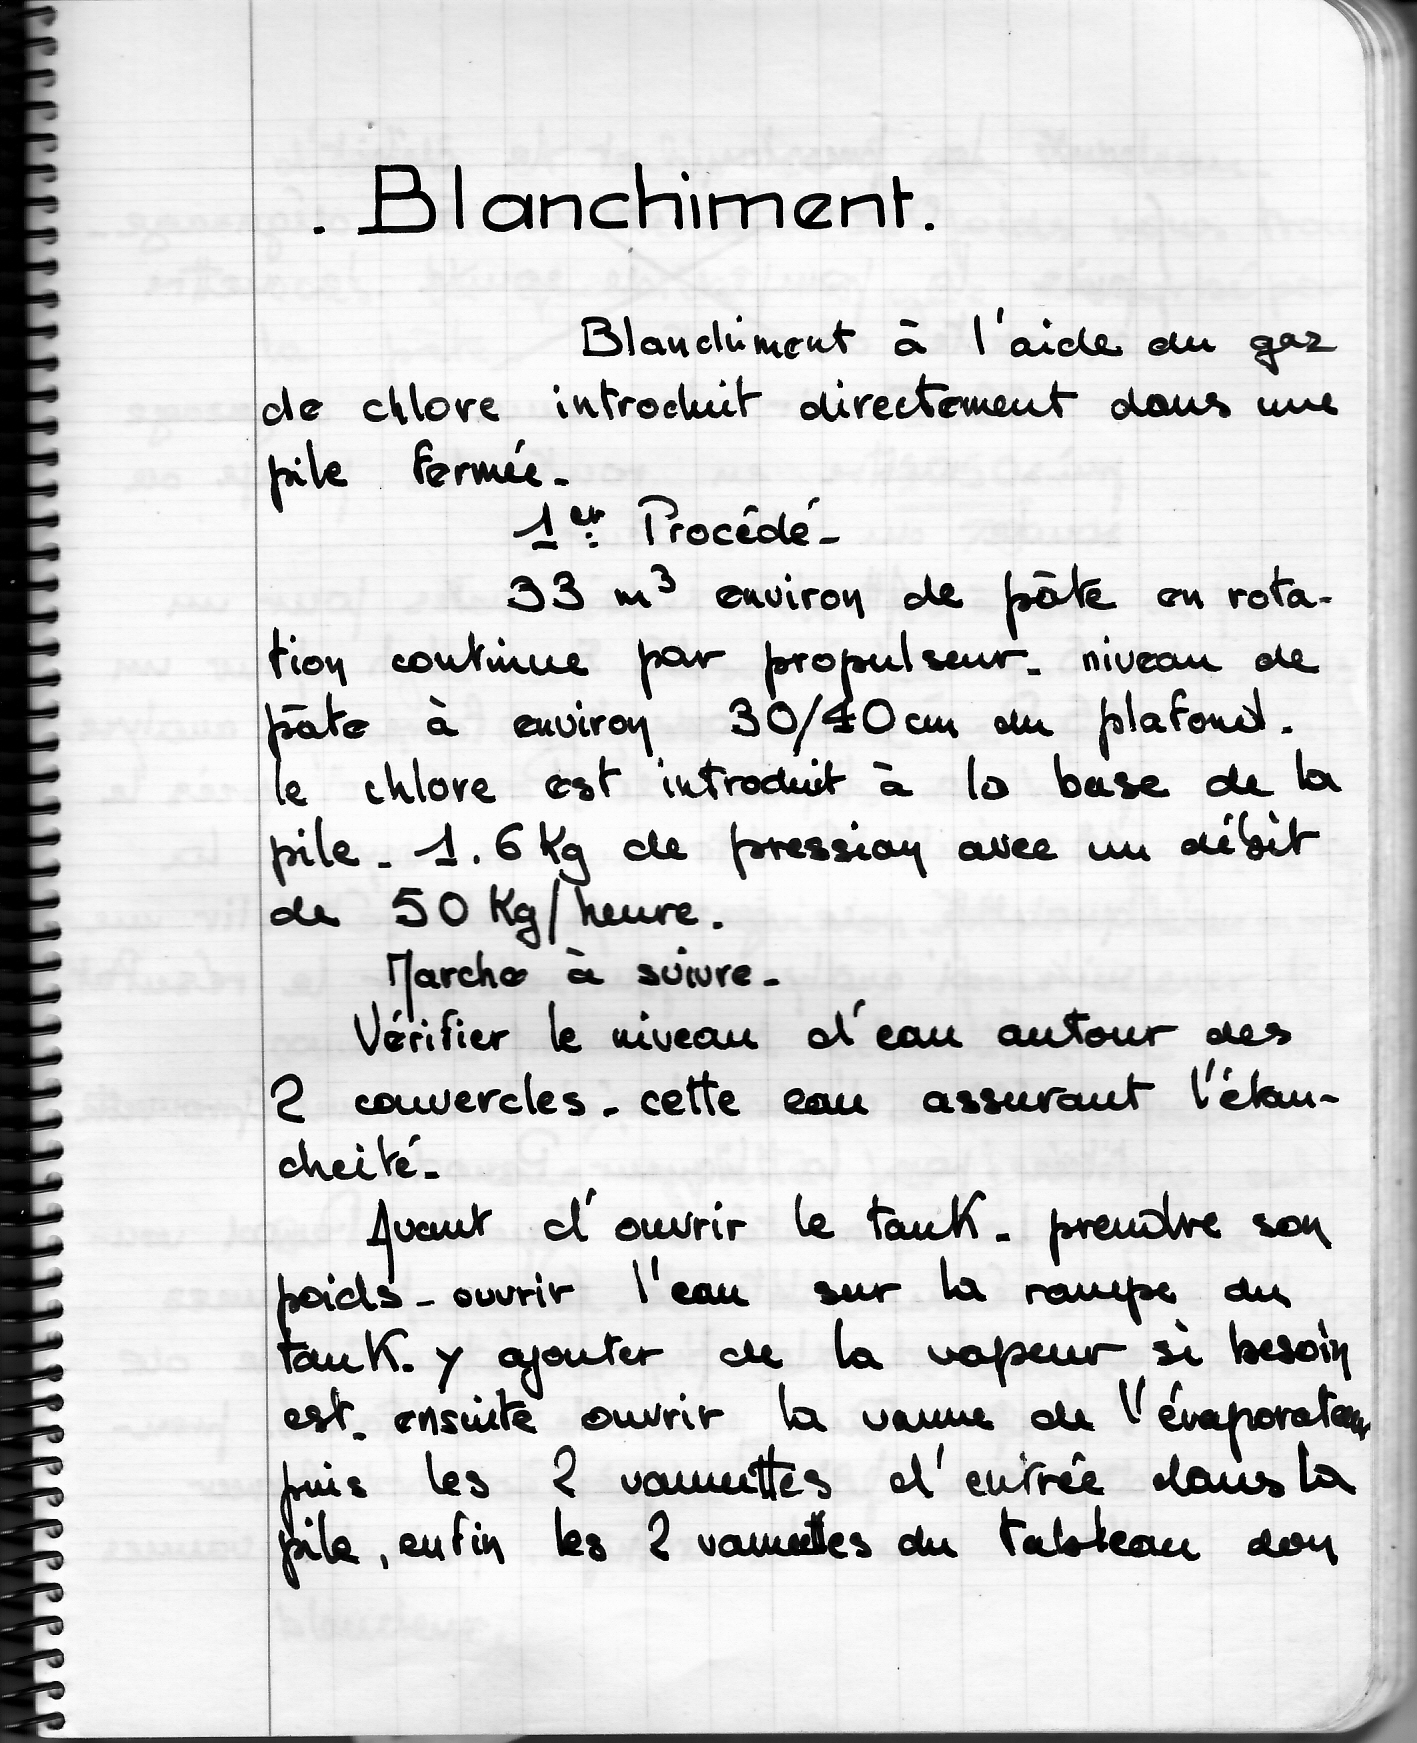 . Blanchiment.
Blanchiment à l'aide du gaz
de chlore introduit directement dans une
pile fermée -
1er Procédé -
33 m³ environ de pâte en rota-
tion continue par propulseur - niveau de
pâte à environ 30/40 cm du plafond.
le chlore est introduit à la base de la
pile - 1.6 Kg de pression avec un débit
de 50 Kg/heure.
Marche à suivre -
Vérifier le niveau d'eau autour des
2 couvercles - cette eau assurant l'étan-
cheité -
Avant d'ouvrir le tank - prendre son
poids - ouvrir l'eau sur la rampe du
tank. y ajouter de la vapeur si besoin
est - ensuite ouvrir la vanne de l'évaporateur
puis les 2 vannettes d'entrée dans la
pile, enfin les 2 vannettes du tableau don